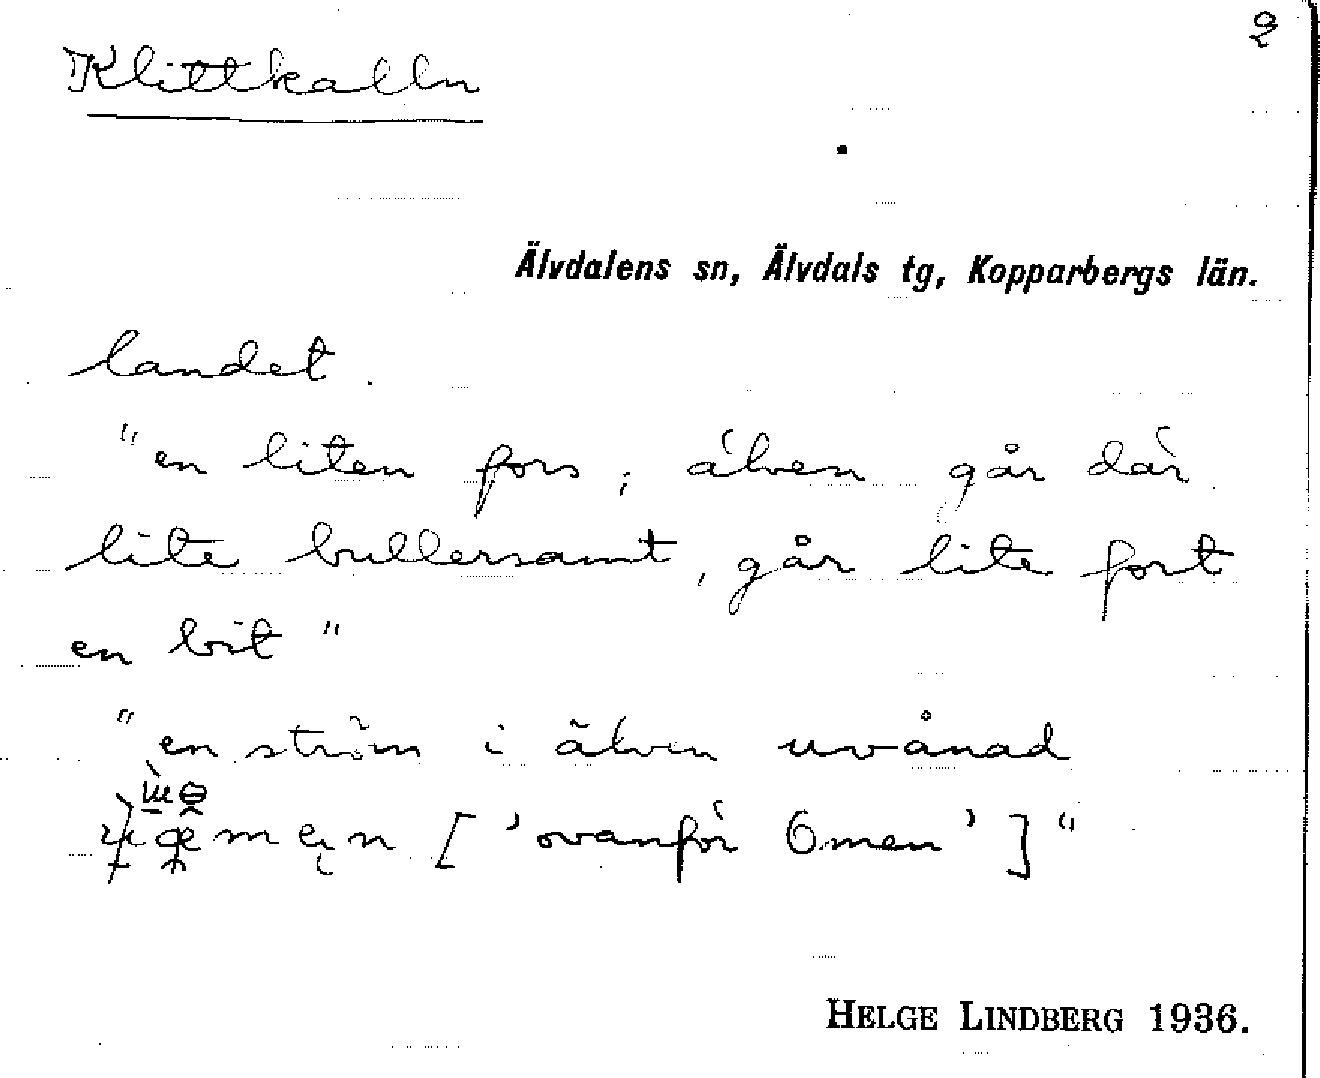 2
Klittkalln
Älvdalens sn, Älvdals tg, Kopparbergs län.
landet.
"en liten fors; älven går där
lite bullersamt, går lite fort
en bit"
"en ström i älven uvånad
['ovanför Ömen']"
HELGE LINDBERG 1936.